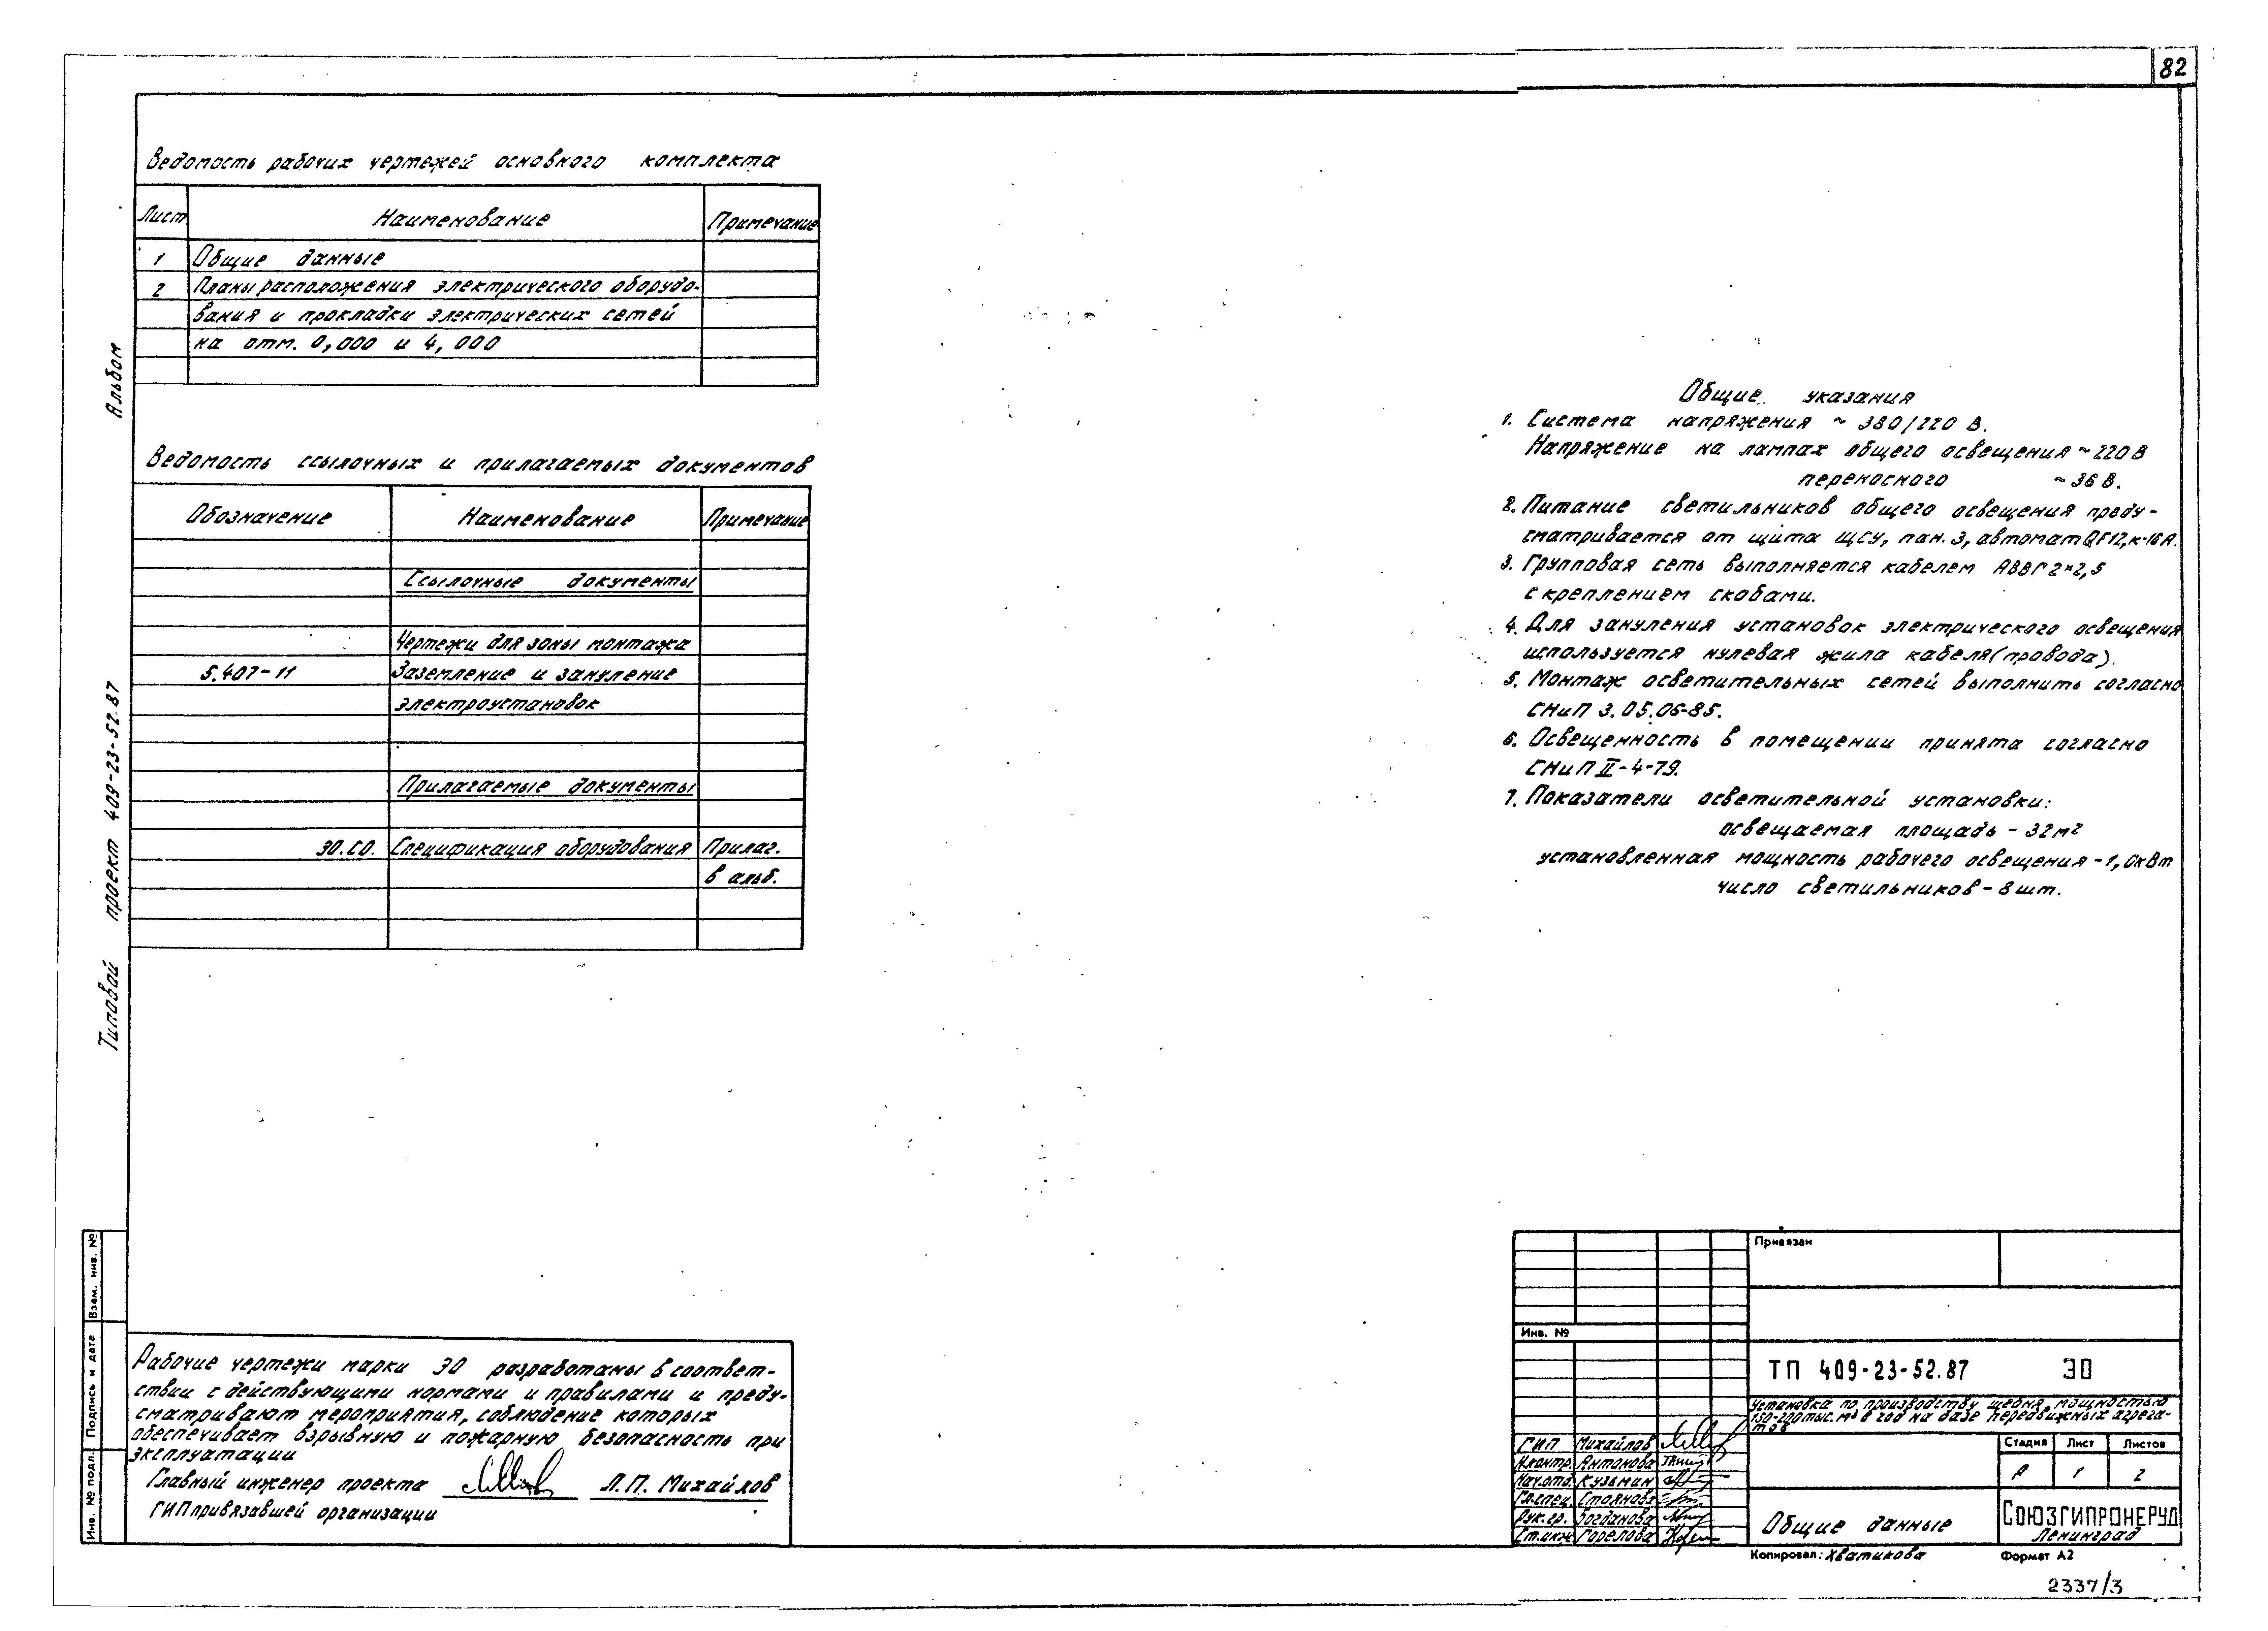 82
Ведомость рабочих чертежей основного комплекта
Лист Наименование Примечание
1 Общие данные
2 Планы расположения электрического оборудо-
вания и прокладки электрических сетей
на отм. 0,000 и 4,000
Ведомость ссылочных и прилагаемых документов
Обозначение Наименование Примечание
Ссылочные документы
Чертежи для зоны монтажа
5.407-11 Заземление и зануление
электроустановок
Прилагаемые документы
ЭО.СО. Спецификация оборудования Прилаг.
в альб.
Альбом
Типовой проект 409-23-52.87
Общие указания
1. Система напряжения ~ 380/220 В.
Напряжение на лампах общего освещения ~ 220 В
переносного ~ 36 В.
2. Питание светильников общего освещения преду-
сматривается от щита ЩСУ, пан. 3, автомат QF12, к-16А.
3. Групповая сеть выполняется кабелем АВВГ 2×2,5
с креплением скобами.
4. Для зануления установок электрического освещения
используется нулевая жила кабеля (провода).
5. Монтаж осветительных сетей выполнить согласно
СНиП 3.05.06-85.
6. Освещенность в помещении принята согласно
СНиП II-4-79.
7. Показатели осветительной установки:
освещаемая площадь - 32 м²
установленная мощность рабочего освещения - 1,0 кВт
число светильников - 8 шт.
Взам. инв. №
Подпись и дата
Инв. № подл.
Рабочие чертежи марки ЭО разработаны в соответ-
ствии с действующими нормами и правилами и преду-
сматривают мероприятия, соблюдение которых
обеспечивает взрывную и пожарную безопасность при
эксплуатации
Главный инженер проекта Л.П. Михайлов
ГИП привязавшей организации
Привязан
Инв. №
ТП 409-23-52.87 ЭО
Установка по производству щебня, мощностью
150-200 тыс. м³ в год на базе передвижных агрега-
тов
ГИП Михайлов
Н.контр. Антонова
Нач.отд. Кузьмин
Гл.спец. Стоянова
Рук.гр. Богданова
Ст.инж. Горелова
Стадия Лист Листов
Р 1 2
Общие данные
СОЮЗГИПРОНЕРУД
Ленинград
Копировал: Хватикова Формат А2
2337/3